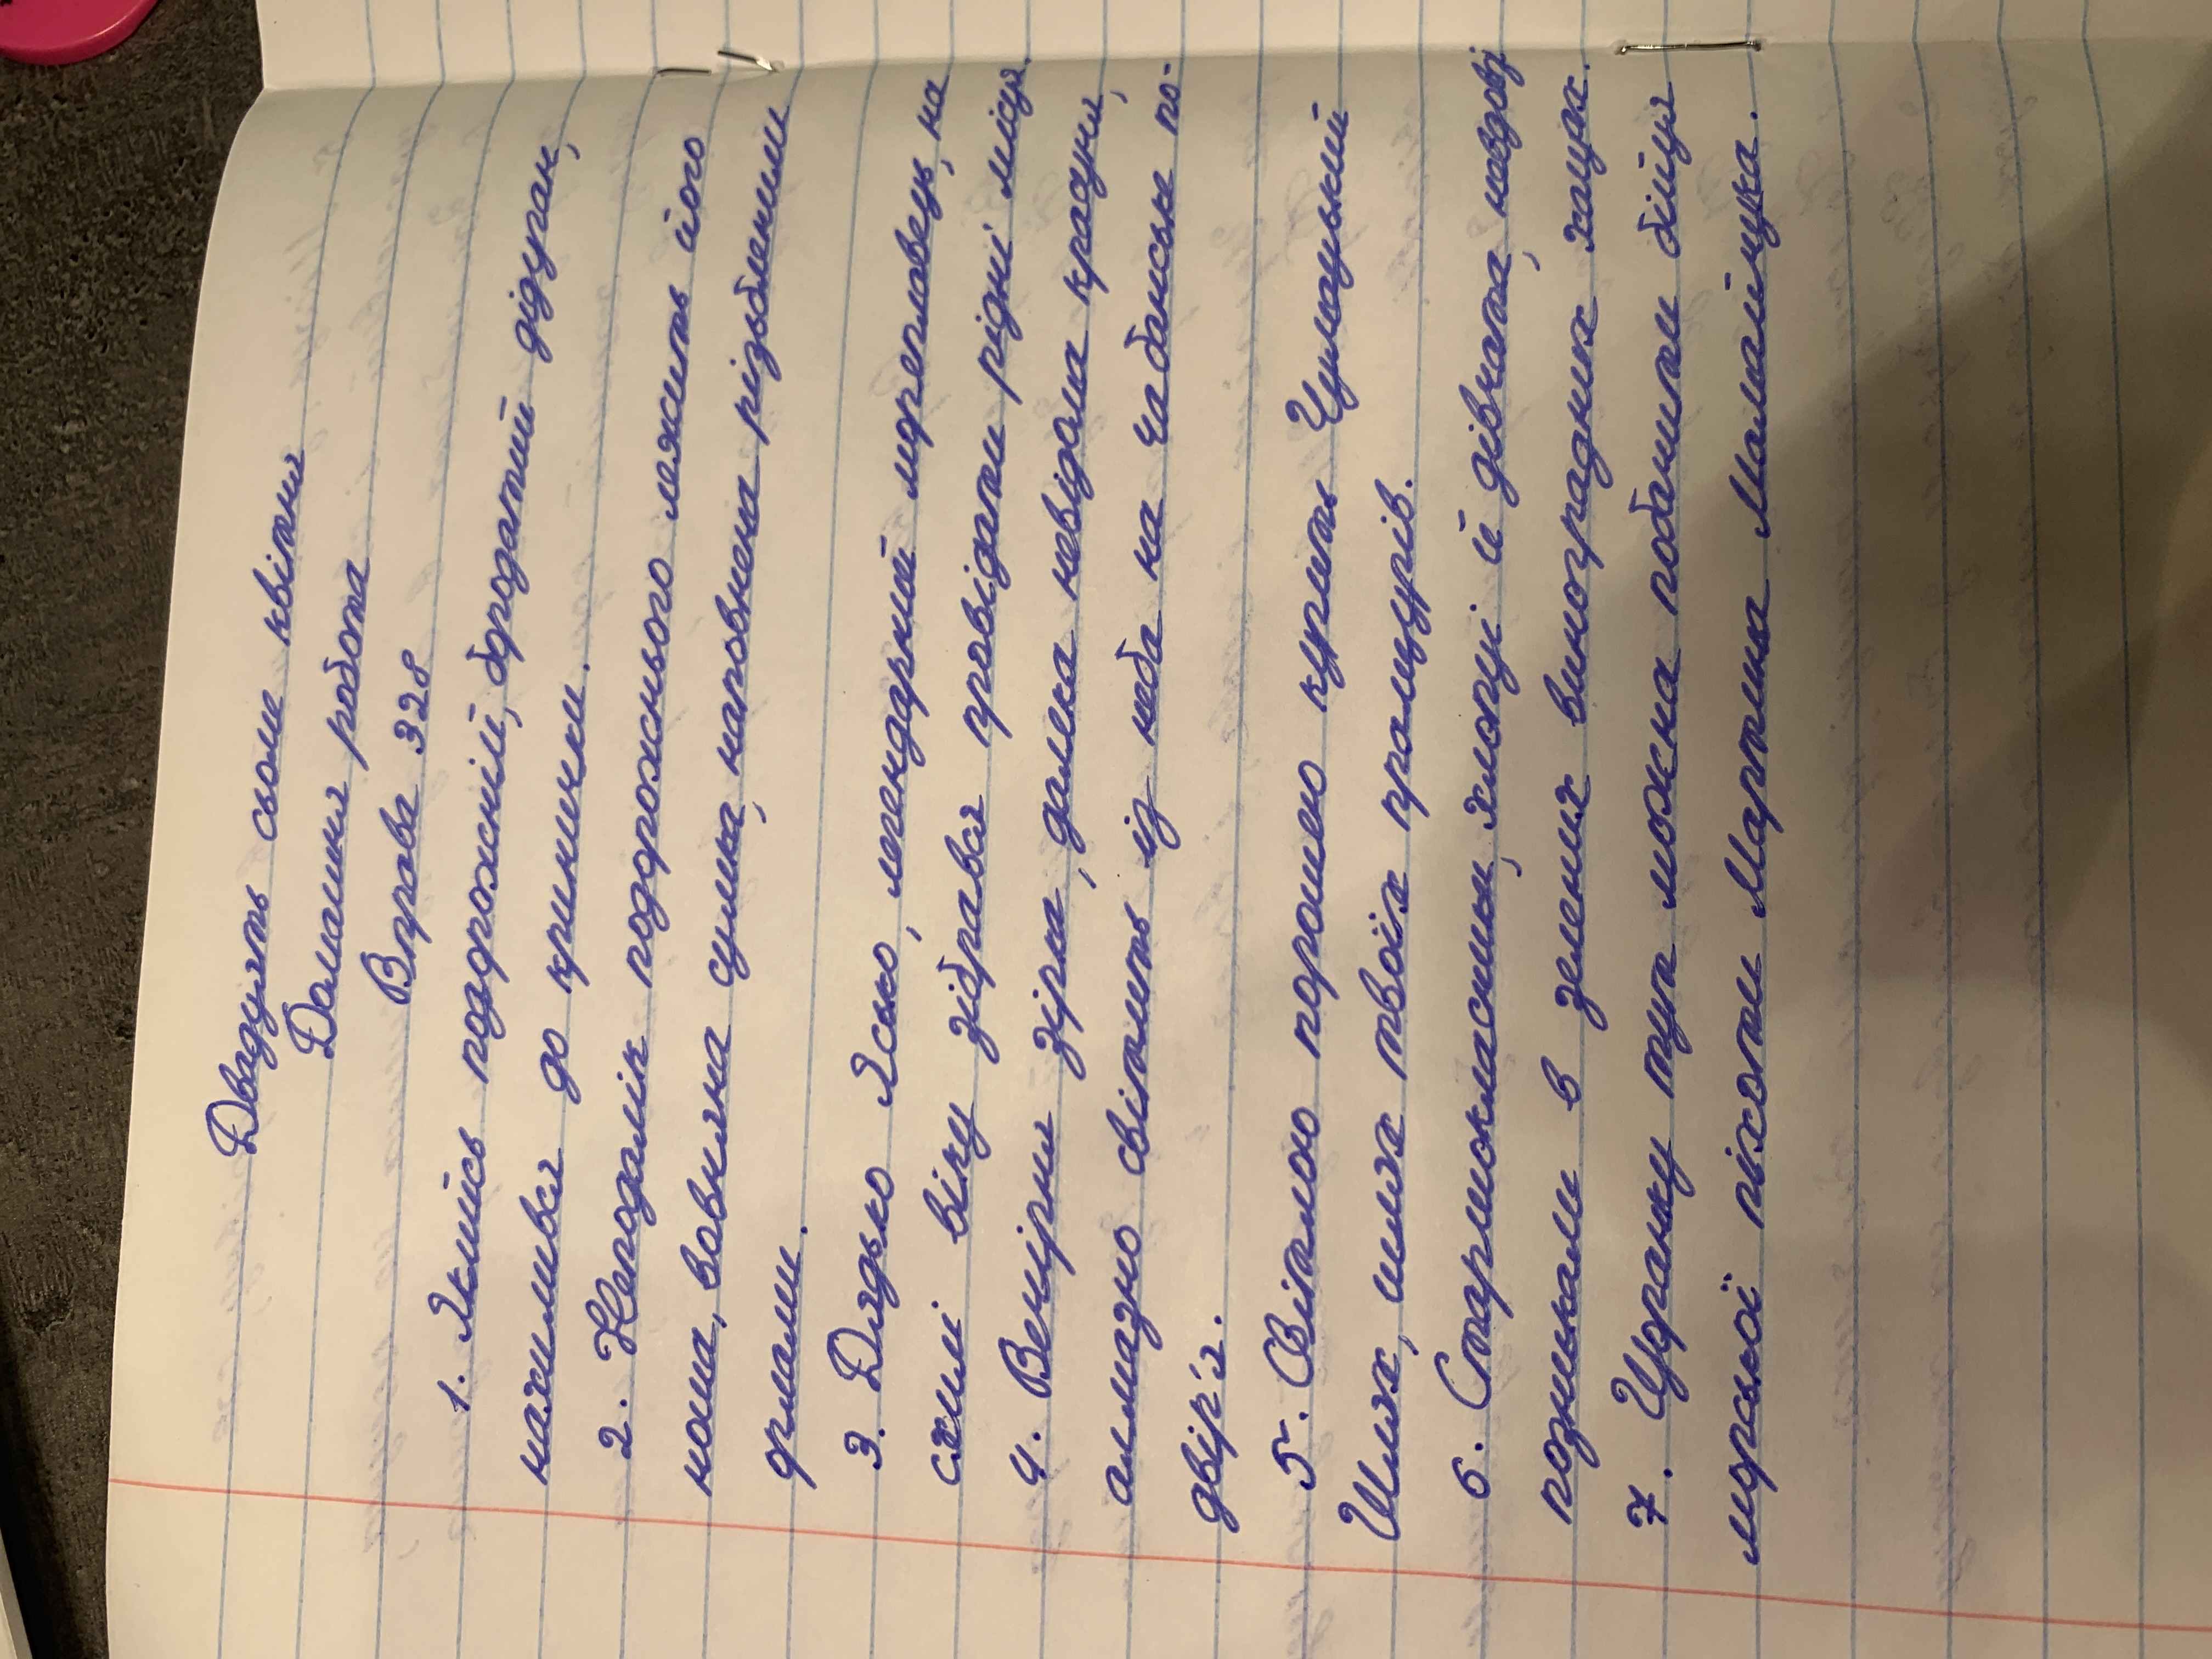 Двадцять сьоме квітня
Домашня робота
Вправа 328
1. Якийсь подорожній, бородатий дідуган,
нахилився до кринички.
2. Неподалік подорожнього лежить його
ноша, вовняна сумка, наповнена різьбленими
рмами.
3. Дядько Ясько, легендарний мореплавець, на
схилі віку зібрався провідати рідні місця.
4. Вечірня зірка, далека невідома крапка,
алмазно світить із неба на чабанське по-
двір'я.
5. Світлою порошею курить Чумацький
Шлях, шлях твоїх пращурів.
6. Старшокласники, хлопці й дівчата, навдовзі
позникали в зелених виноградних хащах.
7. Щоранку тут можна побачити бійця
морської піхоти Мартина Мамайчука.